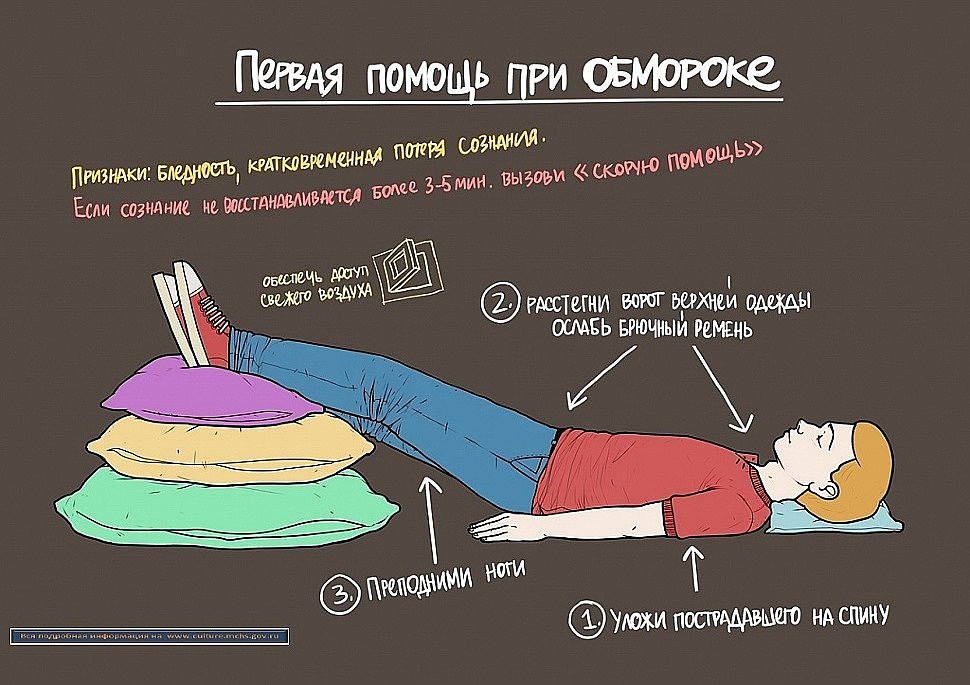 Первая помощь при ОБМОРОКЕ
Признаки: бледность, кратковременная потеря сознания.
Если сознание не восстанавливается более 3-5 мин. вызови «скорую помощь»
обеспечь доступ
свежего воздуха
2. расстегни ворот верхней одежды
ослабь брючный ремень
3. Преподними ноги
1. Уложи пострадавшего на спину
Вся подробная информация на www.culture.mchs.gov.ru